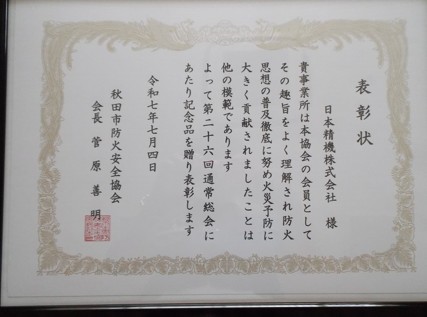 表彰状
日本精機株式会社 様
貴事業所は本協会の会員として
その趣旨をよく理解され防火
思想の普及徹底に努め火災予防に
大きく貢献されましたことは
他の模範であります
よって第二十六回通常総会に
あたり記念品を贈り表彰します
令和七年七月四日
秋田市防火安全協会
会長 菅原善明